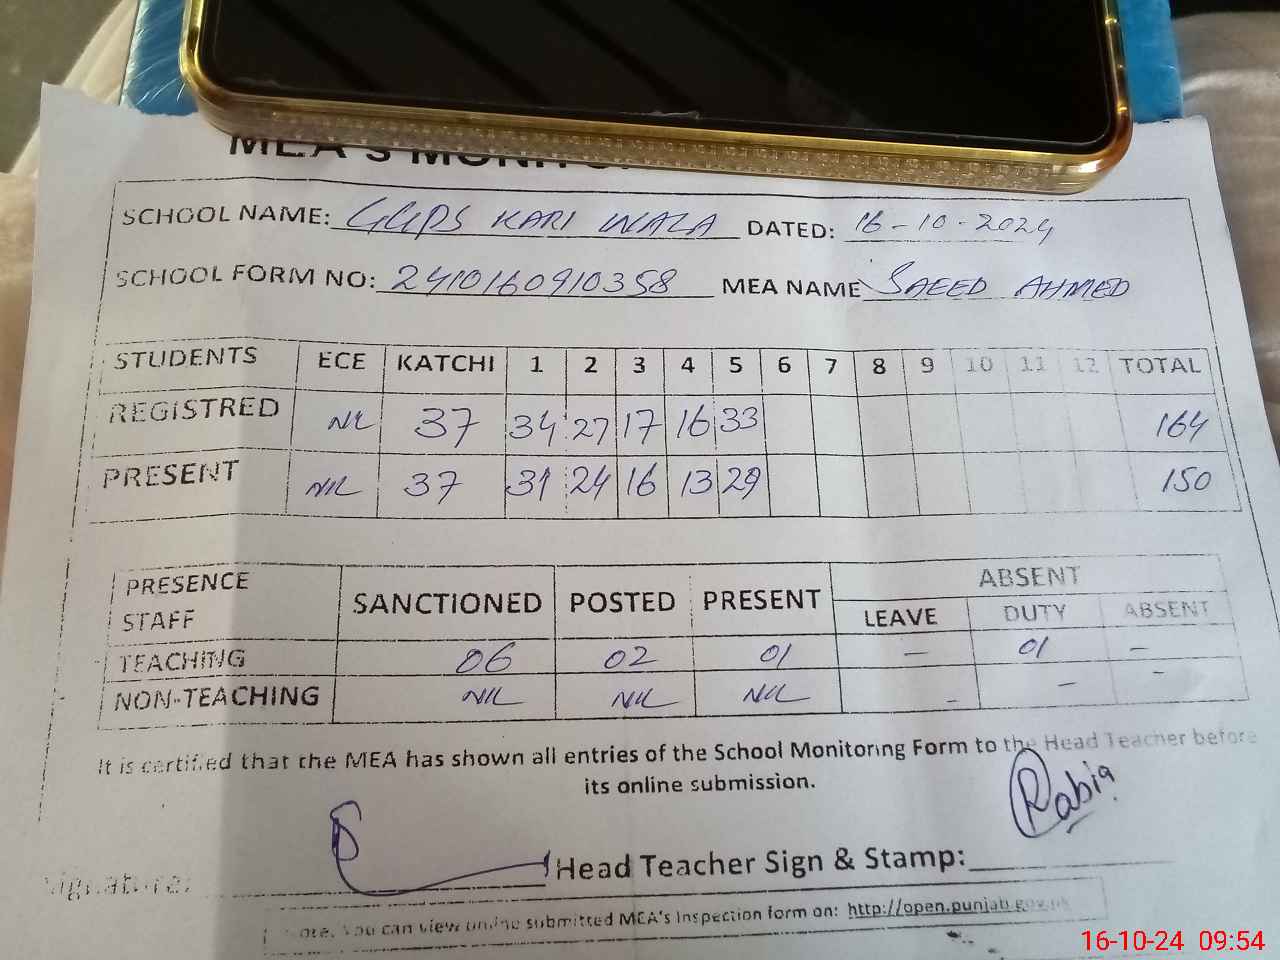 MEA's MONITO
SCHOOL NAME: GGPS KARI WALA DATED: 16-10-2024
SCHOOL FORM NO: 2410160910358 MEA NAME SAEED AHMED
STUDENTS ECE KATCHI 1 2 3 4 5 6 7 8 9 10 11 12 TOTAL
REGISTRED NIL 37 34 27 17 16 33 164
PRESENT NIL 37 31 24 16 13 29 150
PRESENCE STAFF SANCTIONED POSTED PRESENT ABSENT
LEAVE DUTY ABSENT
TEACHING 06 02 01 — 01 —
NON-TEACHING NIL NIL NIL - — -
It is certified that the MEA has shown all entries of the School Monitoring Form to the Head Teacher before
its online submission.
Rabia
Signature: Head Teacher Sign & Stamp:
Note. You can view online submitted MEA's Inspection form on: http://open.punjab.gov.pk
16-10-24 09:54